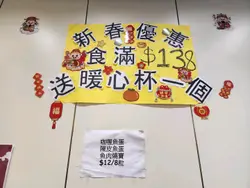 新春優惠
食滿$138
送暖心杯一個
福
咖喱魚蛋
陳皮魚蛋
魚肉燒賣
$12/8粒